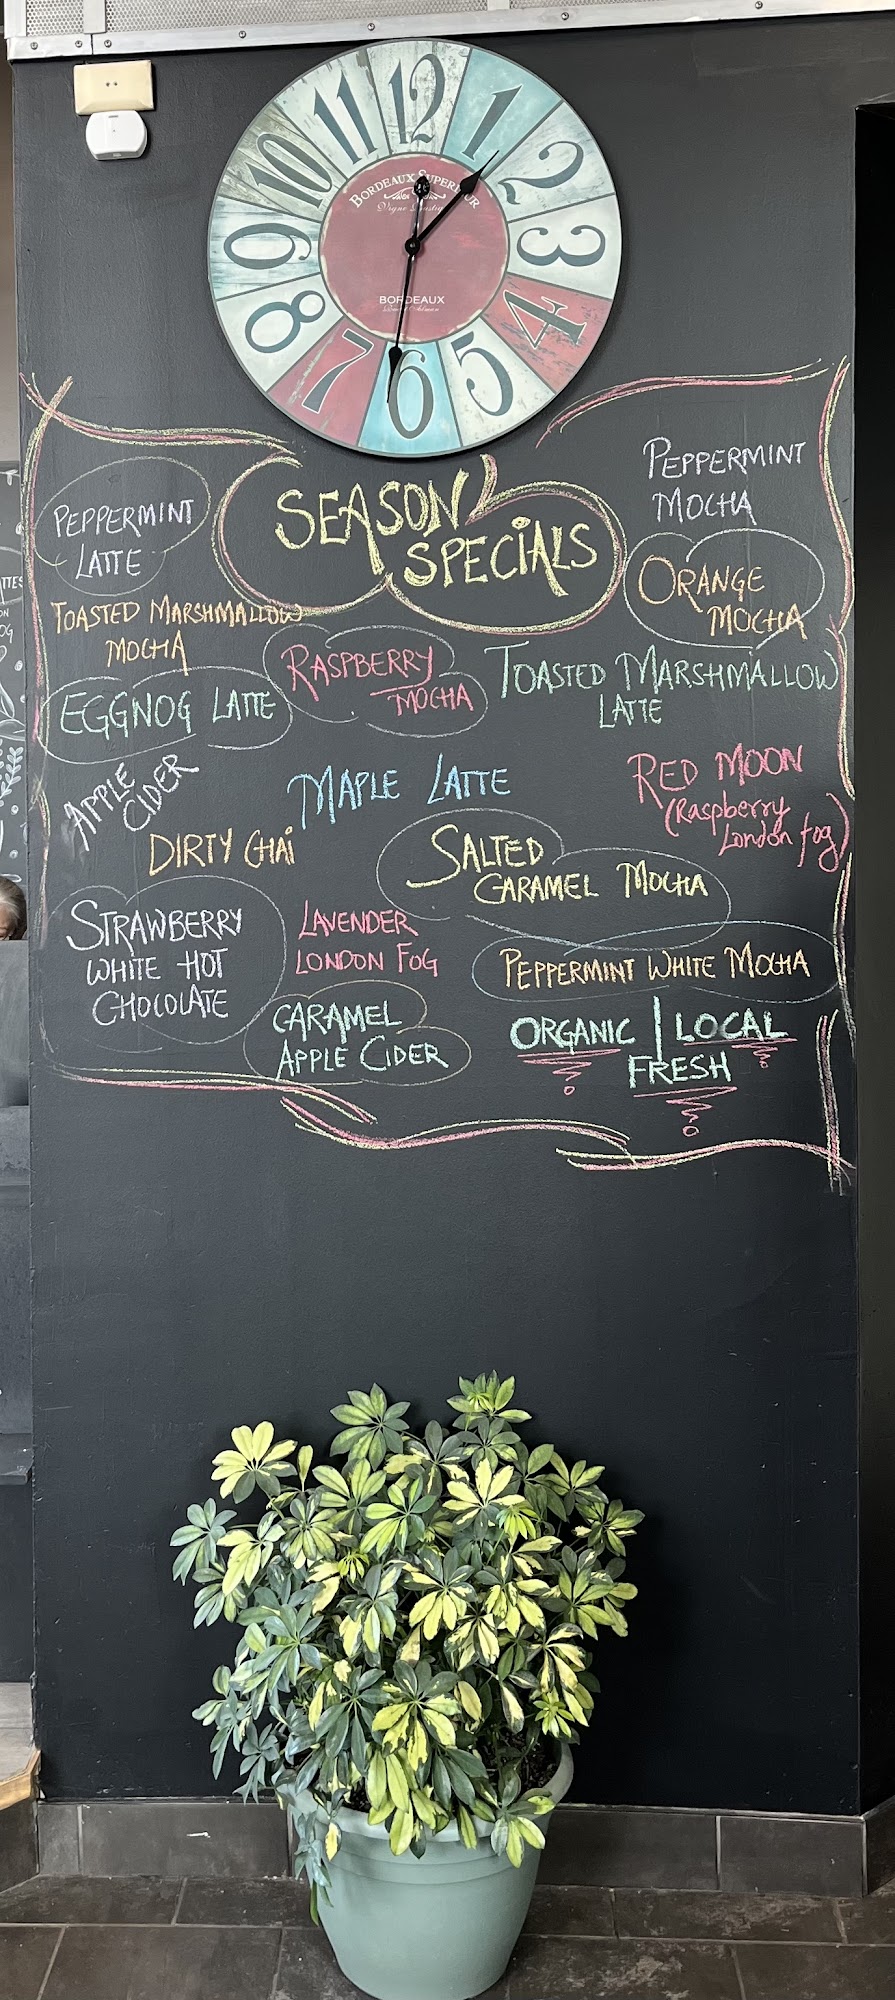 12
1
2
3
4
5
6
7
8
9
10
11
BORDEAUX SUPERIEUR
BORDEAUX
SEASON
SPECIALS
PEPPERMINT
LATTE
PEPPERMINT
MOCHA
TOASTED MARSHMALLOW
MOCHA
ORANGE
MOCHA
EGGNOG LATTE
RASPBERRY
MOCHA
TOASTED MARSHMALLOW
LATTE
APPLE
CIDER
MAPLE LATTE
RED MOON
(Raspberry
London fog)
DIRTY CHAi
SALTED
CARAMEL MOCHA
STRAWBERRY
WHITE HOT
CHOCOLATE
LAVENDER
LONDON FOG
PEPPERMINT WHITE MOCHA
CARAMEL
APPLE CIDER
ORGANIC | LOCAL
FRESH